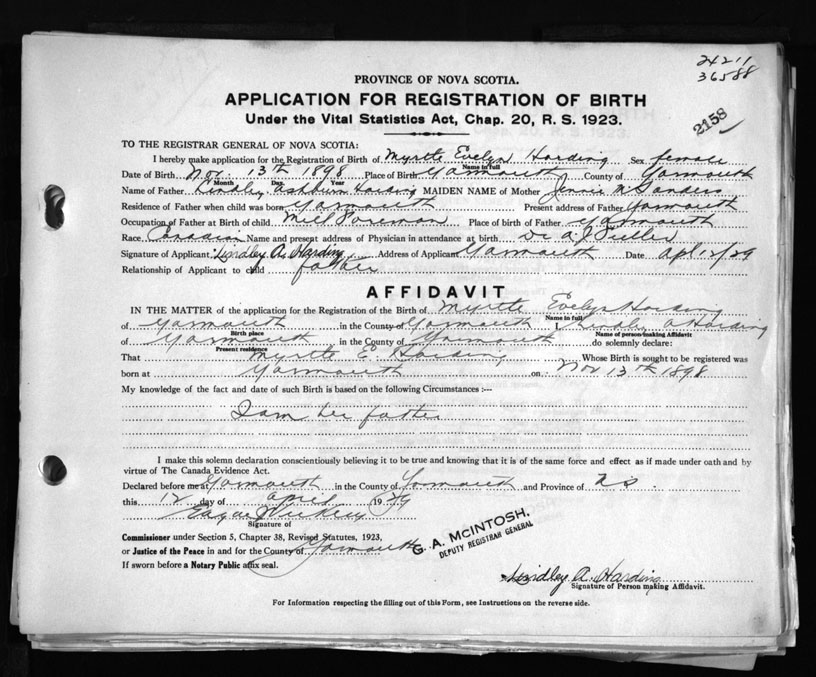 24211
36588
2158
PROVINCE OF NOVA SCOTIA.
APPLICATION FOR REGISTRATION OF BIRTH
Under the Vital Statistics Act, Chap. 20, R. S. 1923.
TO THE REGISTRAR GENERAL OF NOVA SCOTIA:
I hereby make application for the Registration of Birth of Myrtle Evelyn Harding Sex female
Name in full
Date of Birth Nov. 13th 1898 Place of Birth Yarmouth County of Yarmouth
Month Day Year
Name of Father Lindley Ashburn Harding MAIDEN NAME of Mother Jennie M Sanders
Residence of Father when child was born Yarmouth Present address of Father Yarmouth
Occupation of Father at Birth of child Mill Foreman Place of birth of Father Yarmouth
Race Canadian Name and present address of Physician in attendance at birth Dr A J Fuller
Signature of Applicant Lindley A. Harding Address of Applicant Yarmouth Date Apl 12/29
Relationship of Applicant to child father
AFFIDAVIT
IN THE MATTER of the application for the Registration of the Birth of Myrtle Evelyn Harding
Name in full
of Yarmouth in the County of Yarmouth I, Lindley A Harding
Birth place Name of person making Affidavit
of Yarmouth in the County of Yarmouth do solemnly declare:
Present residence
That Myrtle E. Harding Whose Birth is sought to be registered was
born at Yarmouth on Nov 13th 1898
My knowledge of the fact and date of such Birth is based on the following Circumstances :—
I am her father
I make this solemn declaration conscientiously believing it to be true and knowing that it is of the same force and effect as if made under oath and by
virtue of The Canada Evidence Act.
Declared before me at Yarmouth in the County of Yarmouth and Province of N S
this 12 day of April 1929
Signature of
Commissioner under Section 5, Chapter 38, Revised Statutes, 1923,
or Justice of the Peace in and for the County of Yarmouth
If sworn before a Notary Public affix seal.
G. A. McINTOSH.
DEPUTY REGISTRAR GENERAL
Lindley A. Harding
Signature of Person making Affidavit.
For Information respecting the filling out of this Form, see Instructions on the reverse side.